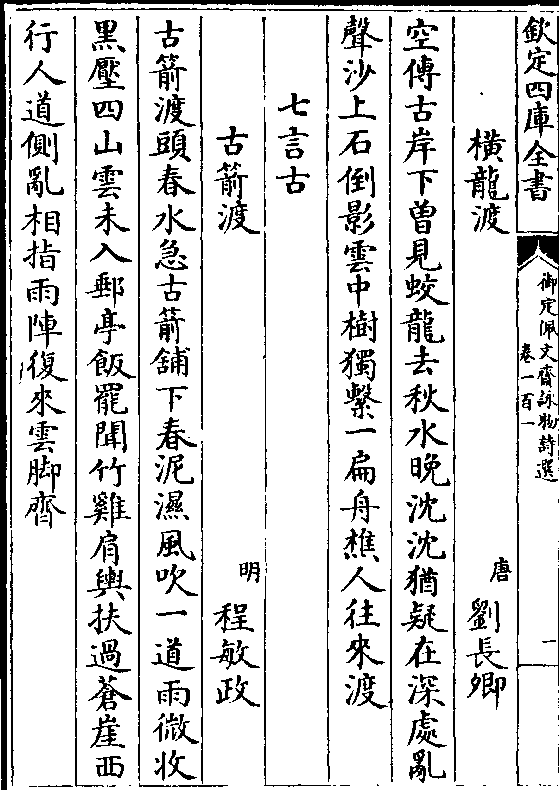 欽定四庫全書
御定佩文齋詠物詩選
卷一百一
一
橫龍渡
唐
劉長卿
空傳古岸下曽見蛟龍去秋水晚沈沈猶疑在深處亂
聲沙上石倒影雲中樹獨繫一扁舟樵人往來渡
七言古
古箭渡
明
程敏政
古箭渡頭春水急古箭舖下春泥濕風吹一道雨微收
黑壓四山雲未入郵亭飯罷聞竹雞肩輿扶過蒼崖西
行人道側亂相指雨陣復來雲脚齊